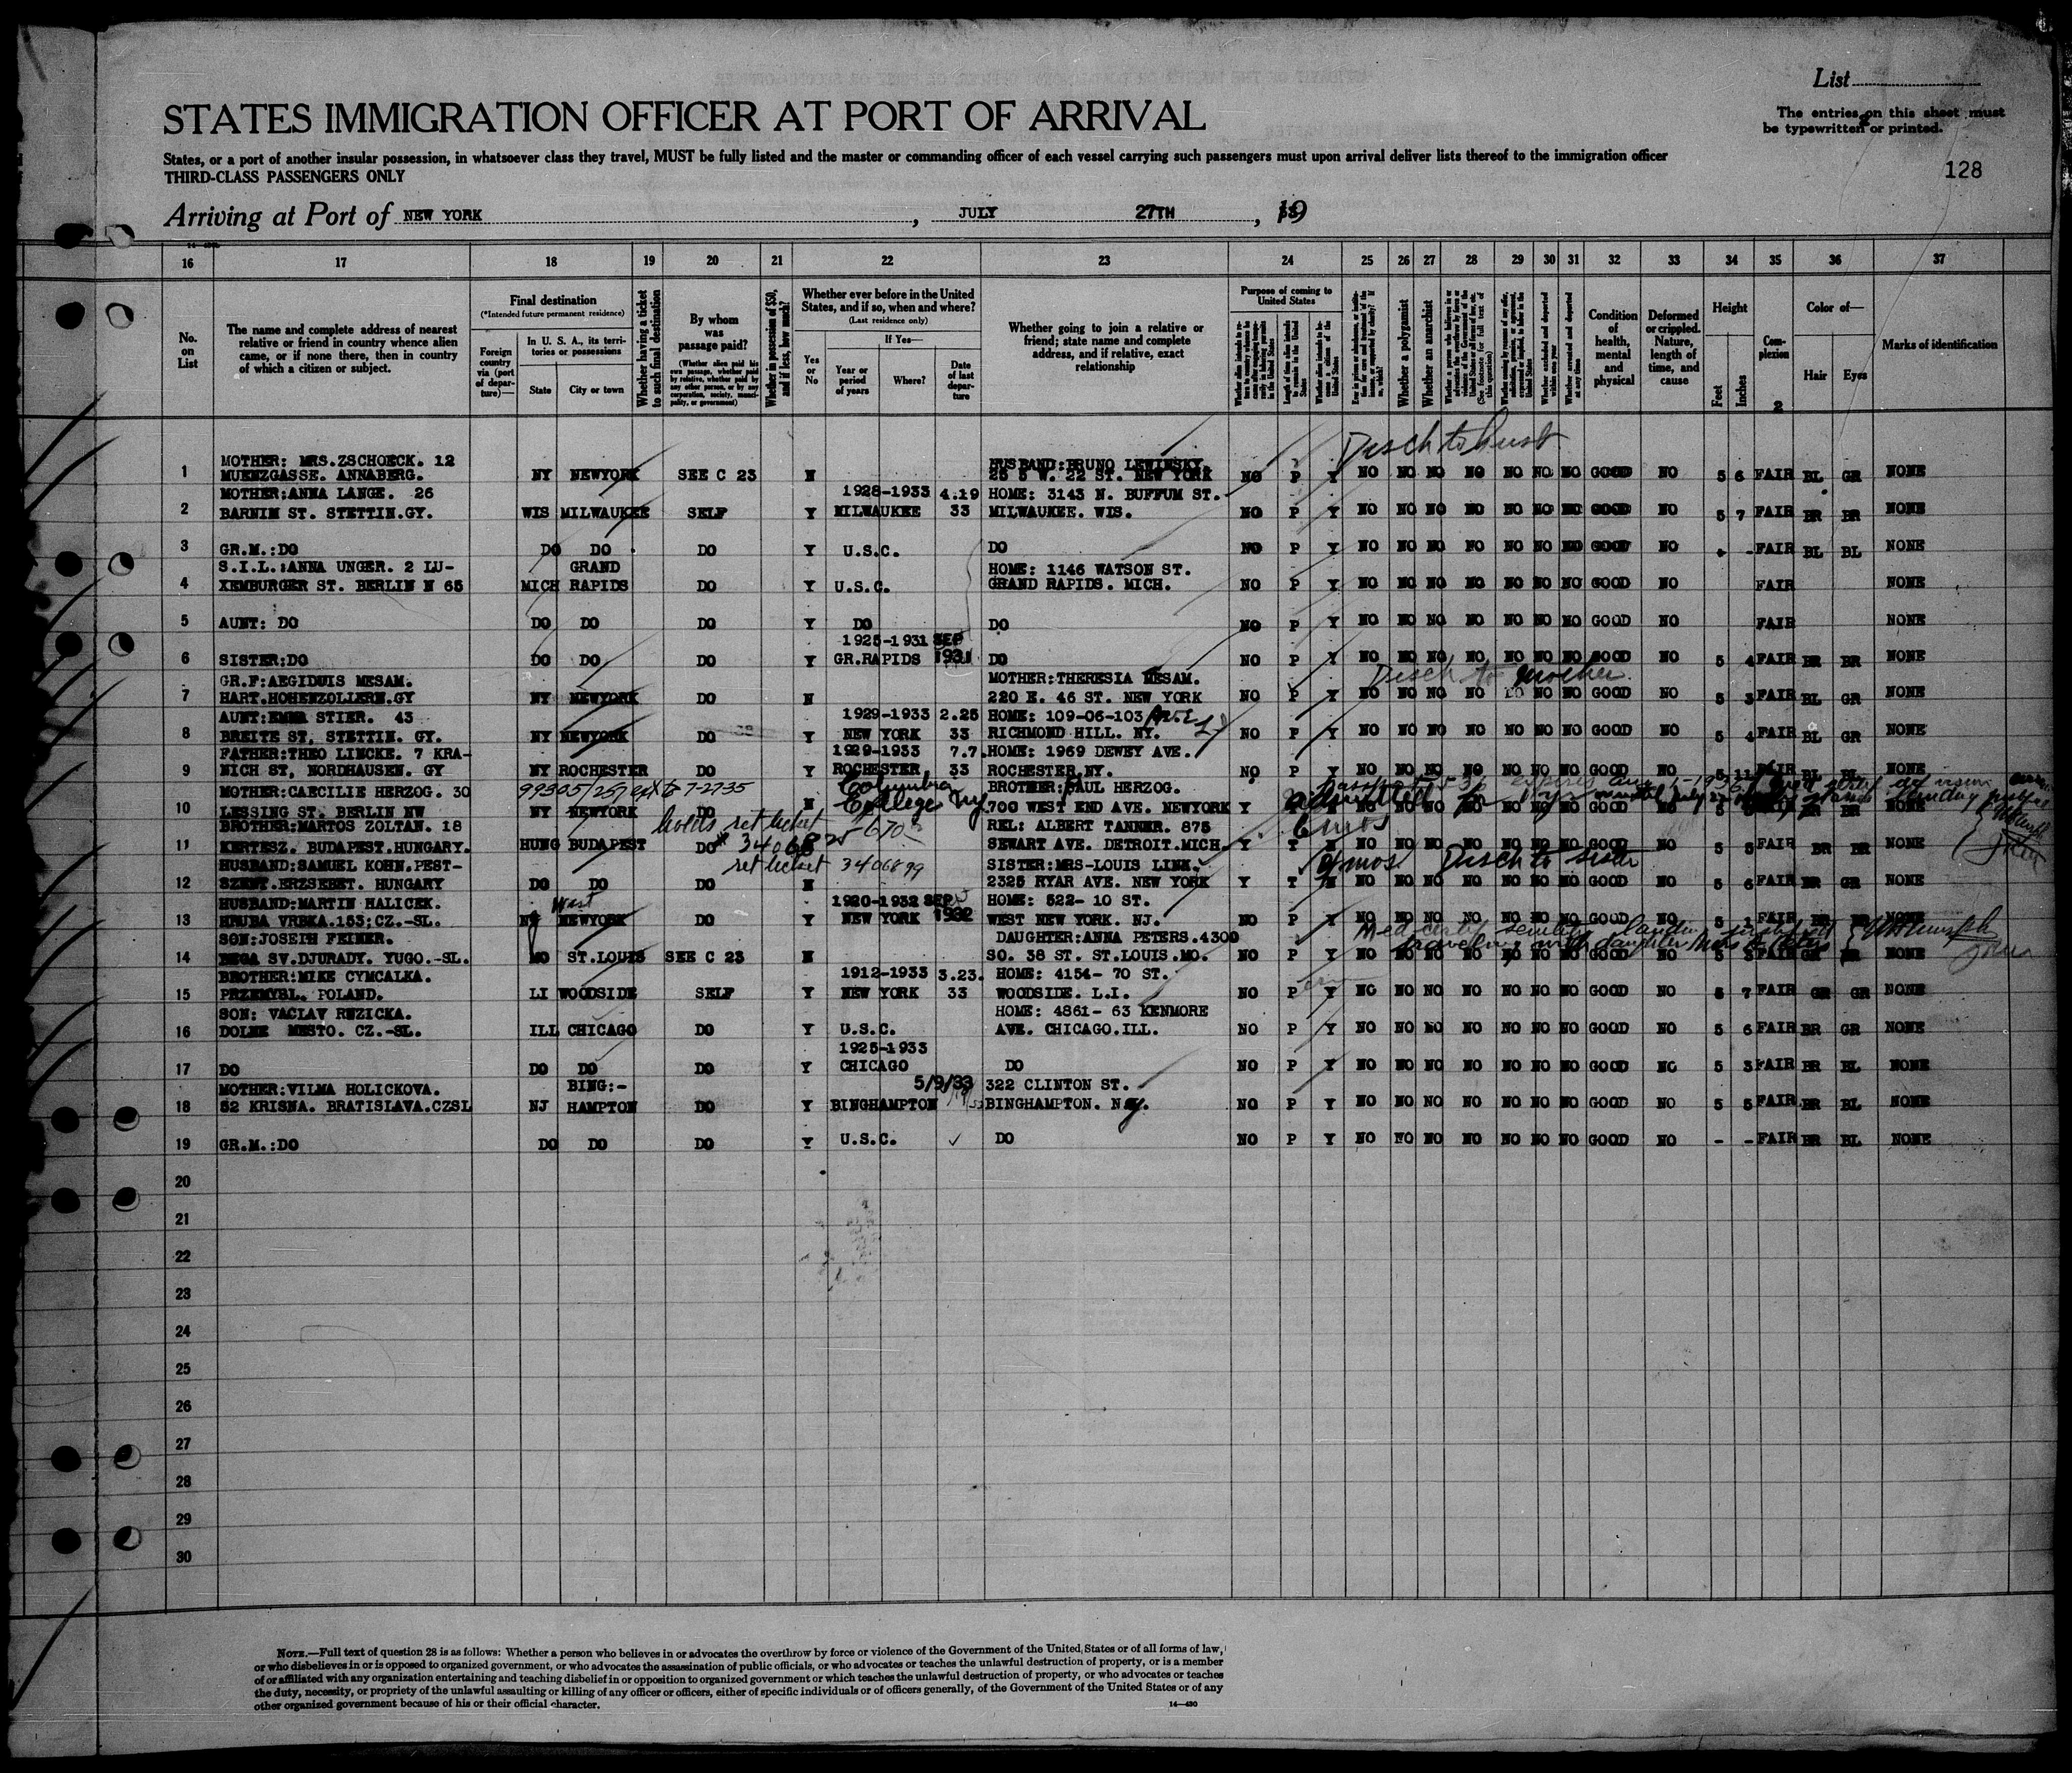 List
STATES IMMIGRATION OFFICER AT PORT OF ARRIVAL
The entries on this sheet must
be typewritten or printed.
States, or a port of another insular possession, in whatsoever class they travel, MUST be fully listed and the master or commanding officer of each vessel carrying such passengers must upon arrival deliver lists thereof to the immigration officer
THIRD-CLASS PASSENGERS ONLY
128
Arriving at Port of NEW YORK, JULY 27TH, 19
16 17 18 19 20 21 22 23 24 25 26 27 28 29 30 31 32 33 34 35 36 37
No. on List
The name and complete address of nearest relative or friend in country whence alien came, or if none there, then in country of which a citizen or subject.
Final destination
(*Intended future permanent residence)
Foreign country via (port of departure)—
In U. S. A., its territories or possessions
State City or town
Whether having a ticket to such final destination
By whom was passage paid?
(Whether alien paid his own passage, whether paid by relative, whether paid by any other person, or by any corporation, society, municipality, or government)
Whether in possession of $50, and if less, how much?
Whether ever before in the United States, and if so, when and where?
(Last residence only)
Yes or No
If Yes—
Year or period of years
Where?
Date of last departure
Whether going to join a relative or friend; state name and complete address, and if relative, exact relationship
Purpose of coming to United States
Whether a polygamist
Whether an anarchist
Condition of health, mental and physical
Deformed or crippled. Nature, length of time, and cause
Height
Feet Inches
Complexion
Color of—
Hair Eyes
Marks of identification
Disch to husb
MOTHER: MRS.ZSCHOECK. 12 HUSBAND:BRUNO LEWINSKY.
1 MUENZGASSE. ANNABERG. NY NEWYORK SEE C 23 N 25 5 W. 22 ST. NEW YORK NO P Y NO NO NO NO NO NO NO GOOD NO 5 6 FAIR BL GR NONE
MOTHER:ANNA LANGE. 26 1928-1933 4.19 HOME: 3143 N. BUFFUM ST.
2 BARNIM ST. STETTIN.GY. WIS MILWAUKEE SELF Y MILWAUKEE 33 MILWAUKEE. WIS. NO P Y NO NO NO NO NO NO NO GOOD NO 5 7 FAIR BR BR NONE
3 GR.M.:DO DO DO DO Y U.S.C. DO NO P Y NO NO NO NO NO NO NO GOOD NO - - FAIR BL BL NONE
S.I.L.:ANNA UNGER. 2 LU- GRAND HOME: 1146 WATSON ST.
4 XEMBURGER ST. BERLIN N 65 MICH RAPIDS DO Y U.S.C. GRAND RAPIDS. MICH. NO P Y NO NO NO NO NO NO NO GOOD NO FAIR NONE
5 AUNT: DO DO DO DO Y DO DO NO P Y NO NO NO NO NO NO NO GOOD NO FAIR NONE
1925-1931 SEP
6 SISTER:DO DO DO DO Y GR.RAPIDS 1931 DO NO P Y NO NO NO NO NO NO NO GOOD NO 5 4 FAIR BR BR NONE
GR.F:AEGIDUIS MESAM. MOTHER:THERESIA MESAM. Disch to mother
7 HART.HOHENZOLLERN.GY NY NEWYORK DO N 220 E. 46 ST. NEW YORK NO P Y NO NO NO NO NO NO NO GOOD NO 5 3 FAIR BL GR NONE
AUNT:EMMA STIER. 43 1929-1933 2.25 HOME: 109-06-103 Ave
8 BREITE ST, STETTIN. GY. NY NEWYORK DO Y NEW YORK 33 RICHMOND HILL. NY. NO P Y NO NO NO NO NO NO NO GOOD NO 5 4 FAIR BL GR NONE
FATHER:THEO LINCKE. 7 KRA- 1929-1933 7.7. HOME: 1969 DEWEY AVE.
9 NICH ST, NORDHAUSEN. GY NY ROCHESTER DO Y ROCHESTER 33 ROCHESTER.NY. NO P Y NO NO NO NO NO NO NO GOOD NO 5 11 FAIR BL BL NONE
MOTHER:CAECILIE HERZOG. 30 Columbia BROTHER:PAUL HERZOG.
10 LESSING ST. BERLIN NW NY NEWYORK DO N College NY 700 WEST END AVE. NEWYORK Y admitted NO NO NO NO GOOD NO BR BR NONE
BROTHER:MARTOS ZOLTAN. 18 holds ret ticket REL: ALBERT TANNER. 875 6 mos
11 KERTESZ. BUDAPEST.HUNGARY. HUNG BUDAPEST DO SEWART AVE. DETROIT.MICH. Y T N NO NO NO NO NO NO NO GOOD NO 5 5 FAIR BR BR NONE
HUSBAND:SAMUEL KOHN.PEST- ret ticket 3406899 SISTER:MRS-LOUIS LINK. mos Disch to sister
12 SZENT.ERZSEBET. HUNGARY DO DO DO N 2325 RYAR AVE. NEW YORK Y T N NO NO NO NO NO NO NO GOOD NO 5 6 FAIR BR GR NONE
HUSBAND:MARTIN HALICEK. West 1920-1932 SEP HOME: 522- 10 ST.
13 HRUBA VRBKA.153;CZ.-SL. NJ NEWYORK DO Y NEW YORK 1932 WEST NEW YORK. NJ. NO P Y NO NO NO NO NO NO NO GOOD NO 5 1 FAIR BR BR NONE
SON:JOSEIH FEINER. DAUGHTER:ANNA PETERS.4300 Med certif senility traveling with daughter
14 BEGA SV.DJURADY. YUGO.-SL. MO ST.LOUIS SEE C 23 N SO. 38 ST. ST.LOUIS.MO. NO P Y NO NO NO NO NO NO NO GOOD NO 5 3 FAIR GR BR NONE
BROTHER:MIKE CYMCALKA. 1912-1933 3.23. HOME: 4154- 70 ST.
15 PRZEMYSL. POLAND. LI WOODSIDE SELF Y NEW YORK 33 WOODSIDE. L.I. NO P Y NO NO NO NO NO NO NO GOOD NO 5 7 FAIR GR GR NONE
SON: VACLAV RUZICKA. HOME: 4861- 63 KENMORE
16 DOLNE MESTO. CZ.-SL. ILL CHICAGO DO Y U.S.C. AVE. CHICAGO.ILL. NO P Y NO NO NO NO NO NO NO GOOD NO 5 6 FAIR BR GR NONE
1925-1933
17 DO DO DO DO Y CHICAGO DO NO P Y NO NO NO NO NO NO NO GOOD NO 5 3 FAIR BR BL NONE
MOTHER:VILMA HOLICKOVA. BING:- 5/9/33 322 CLINTON ST.
18 52 KRISNA. BRATISLAVA.CZSL NJ HAMPTON DO Y BINGHAMPTON BINGHAMPTON. NY. NO P Y NO NO NO NO NO NO NO GOOD NO 5 5 FAIR BR BL NONE
19 GR.M.:DO DO DO DO Y U.S.C. DO NO P Y NO NO NO NO NO NO NO GOOD NO - - FAIR BR BL NONE
20
21
22
23
24
25
26
27
28
29
30
NOTE.—Full text of question 28 is as follows: Whether a person who believes in or advocates the overthrow by force or violence of the Government of the United States or of all forms of law,
or who disbelieves in or is opposed to organized government, or who advocates the assassination of public officials, or who advocates or teaches the unlawful destruction of property, or is a member
of or affiliated with any organization entertaining and teaching disbelief in or opposition to organized government or which teaches the unlawful destruction of property, or who advocates or teaches
the duty, necessity, or propriety of the unlawful assaulting or killing of any officer or officers, either of specific individuals or of officers generally, of the Government of the United States or of any
other organized government because of his or their official character.
14—430